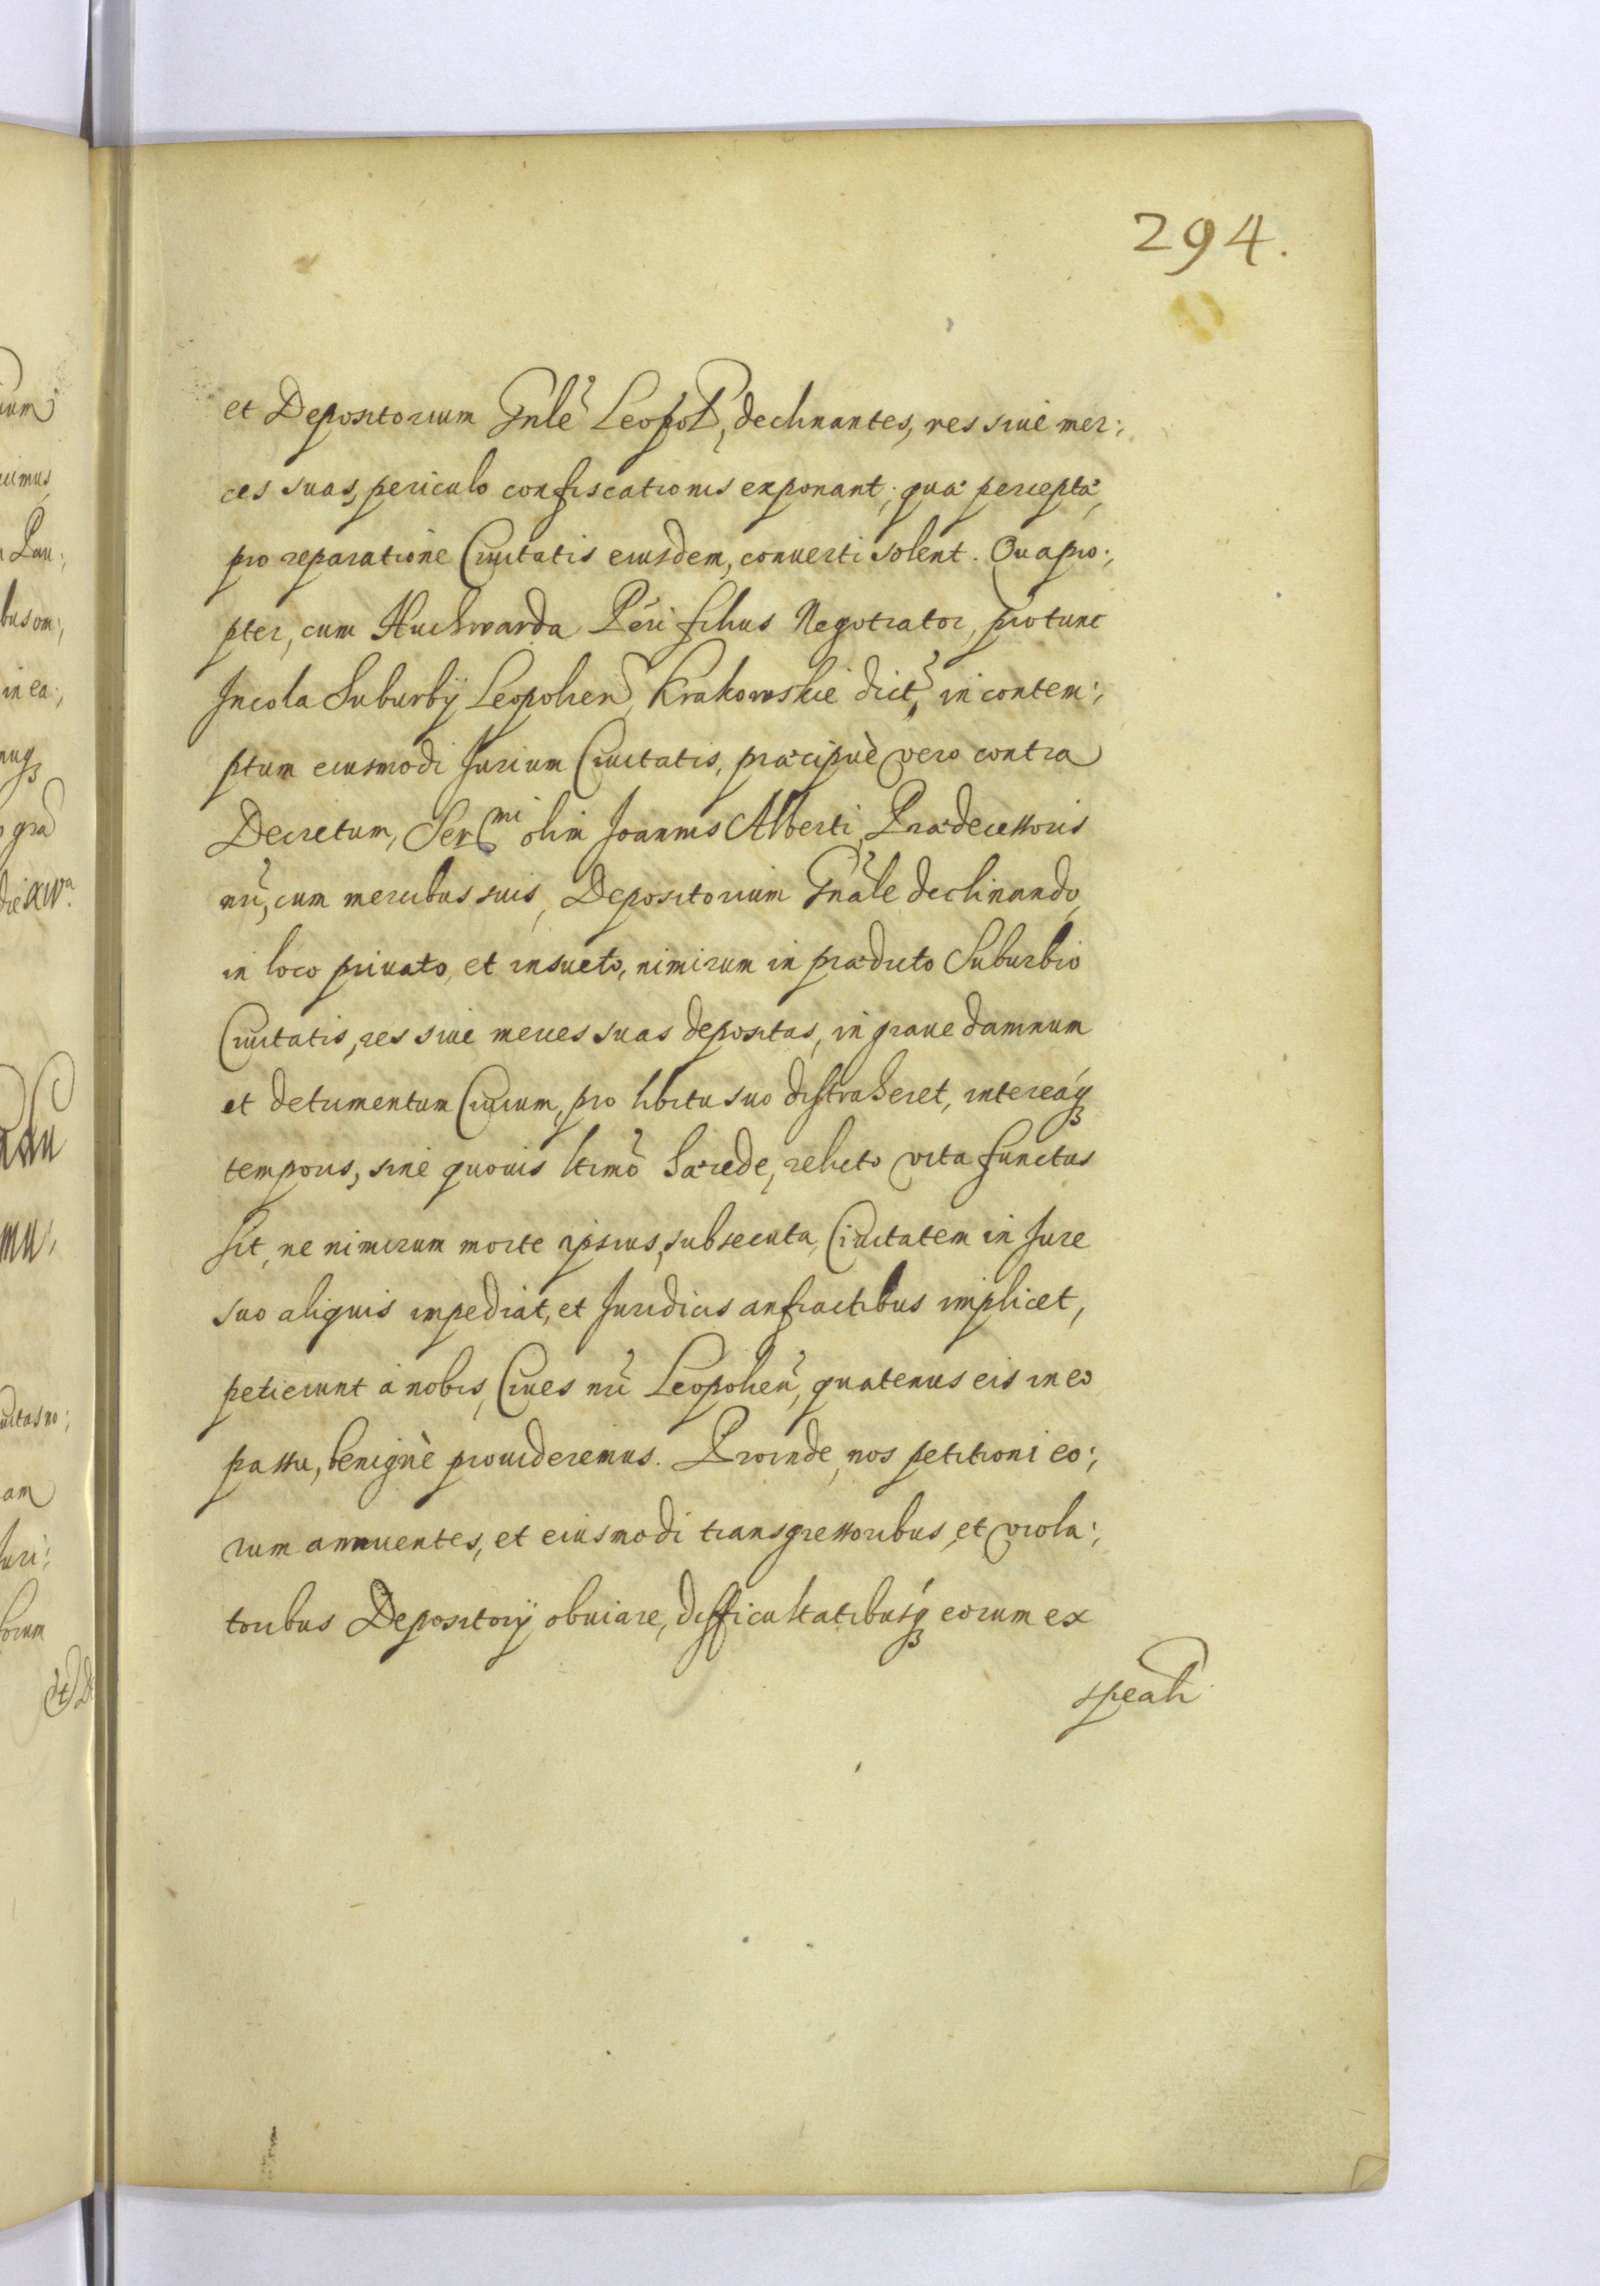 294.
et Depositorium Gnle Leopol, declinantes, res siue mer:,
ces suas, periculo confiscationis exponant, quæ perceptæ,
pro reparatione Ciuitatis eiusdem, conuerti solent. Quapro:,
pter, cum Huchwarda Petri filius Negotiator, protunc
Incola Suburbij Leopolien, Krakowskie dict, in contem:,
ptum eiusmodi Jurium Ciuitatis, præcipuè vero contra
Decretum, Sermi olim Joannis Alberti, Prædecessoris
nri, cum mercibus suis, Depositorium Gnale declinando,
in loco priuato, et insueto, nimirum in prædicto Suburbio
Ciuitatis, res siue merces suas depositas, in graue damnum
et detrimentum Ciuium, pro libitu suo distraheret, intereaq
temporis, sine quouis ltimo hærede, relicto vita functus
sit, ne nimirum morte ipsius, subsecuta, Ciuitatem in Jure
suo aliquis impediat, et Juridicis anfractibus implicet,
petierunt à nobis, Ciues nri Leopolien, quatenus eis in eo
passu, benignè prouideremus. Proinde, nos petitioni eo:,
rum annuentes, et eiusmodi transgressoribus, et viola:,
toribus Depositorij obuiare, difficultatibusq eorum ex
speali